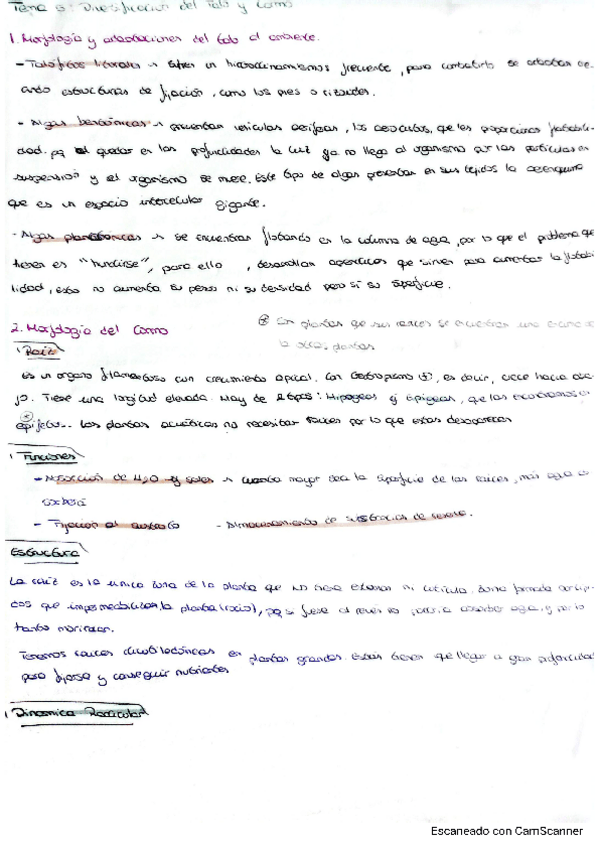 Tema 5: Diversificación del Talo y Cormo
1. Morfología y adaptaciones del talo al ambiente.
- Talófitos litorales → sufren un hidrodinamismos frecuente, para combatirlo se adaptan
ando estructuras de fijación, como los pies o rizoides.
- Algas bentónicas → presentan vesículas aeríferas, los aerocistos, que les proporcionan flotabili-
dad. pq al quedar en las profundidades la luz ya no llega al organismo por las partículas en
suspensión y el organismo se muere. Este tipo de algas presentan en sus tejidos la aerenquima
que es un espacio intercelular gigante.
- Algas planctónicas → se encuentran flotando en la columna de agua, por lo que el problema que
tienen es "hundirse", para ello, desarrollan apéndices que sirven para aumentar la flotabi
lidad, esto no aumenta su peso ni su densidad pero sí su superficie.
2. Morfología del Cormo
Son plantas que sus raíces se encuentran
la otras plantas
Raíz
Es un órgano filamentoso con crecimiento apical. Con Geotropismo (+), es decir, crece hacia aba
jo. Tiene una longitud elevada. Hay de 2 tipos: Hipogeas y Epigeas, que las encontramos en
epífitas. Las plantas acuáticas no necesitan raíces por lo que estas desaparecen
Funciones
- Absorción de H2O y sales → cuanto mayor sea la superficie de las raíces, más agua
sorberá
- Fijación al sustrato - Almacenamiento de sustancias de reserva.
Estructura
La raíz es la única zona de la planta que no tiene estomas ni cutícula, zona formada por lípi-
dos que impermeabilizan la planta (racio), pq si fuese al revés no podría absorber agua, y por lo
tanto morirían.
Tenemos raíces dicotiledóneas en plantas grandes. Estas tienen que llegar a gran profundidad
para fijarse y conseguir nutrientes
Dinámica Radicular
Escaneado con CamScanner